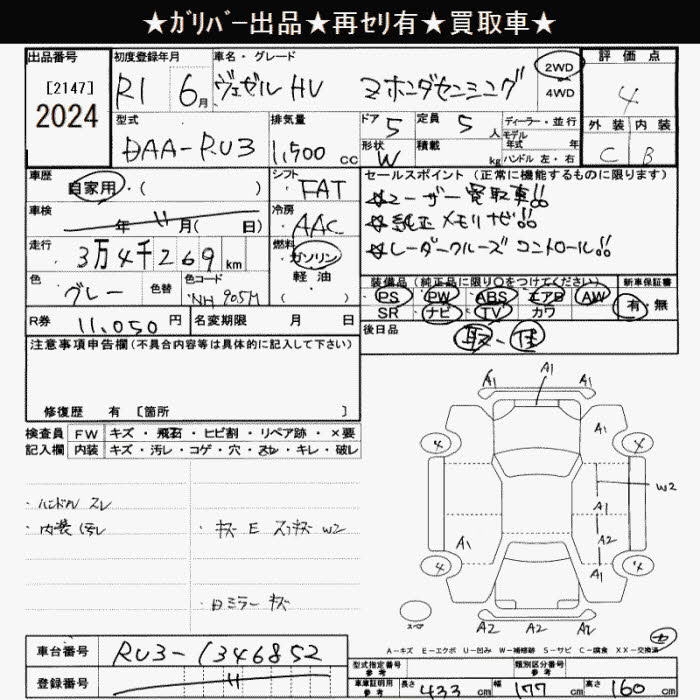 ★ｶﾞﾘﾊﾞｰ出品★再ｾﾘ有★買取車★
出品番号
[2147]
2024
初度登録年月
R1 6月
車名・グレード
ヴェゼル HV Z ホンダセンシング
2WD
4WD
評価点
4
外装 内装
C B
型式
DAA-RU3
排気量
1,500 cc
ドア 5
定員 5 人
形状 W
積載 kg
ディーラー・並行
モデル
年式 年
ハンドル 左・右
車歴
自家用・( )
シフト
FAT
車検
年 月( 日)
冷房
AAC
走行
3万4千269 km
燃料
ガソリン
軽油
( )
色
グレー
色替
色コード
NH 905M
セールスポイント (正常に機能するものに限ります)
ユーザー買取車!!
純正メモリナビ!!
レーダークルーズコントロール!!
装備品 (純正品に限り○をつけてください)
PS PW ABS エアB AW
SR ナビ TV カワ
新車保証書
有・無
R券 11,050 円
名変期限 月 日
後日品
取-保
注意事項申告欄(不具合内容等は具体的に記入して下さい)
修復歴 有 [箇所 ]
検査員 FW キズ・飛石・ヒビ割・リペア跡・×要
記入欄 内装 キズ・汚レ・コゲ・穴・スレ・キレ・破レ
・ハンドル スレ
・内装 汚レ
・キズ E スリキズ W2
・日ミラー キズ
A1 A1 A1
A1
4 4
W2
A1
A1 A2
A1
4 4
スペア
A2 A2 A2
A-キズ E-エクボ U-凹み W-補修跡 S-サビ C-腐食 XX-交換済
車台番号
RU3-1346852
登録番号
型式指定番号
参考
類別区分番号
参考
車庫証明用
参考
長さ 433 cm 幅 177 cm 高さ 160 cm